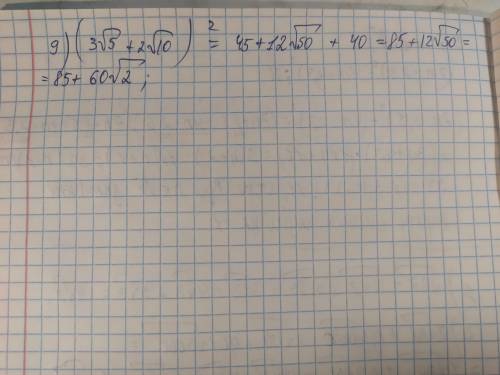 9) (3√5 + 2√10)² = 45 + 12√50 + 40 = 85 + 12√50 =
= 85 + 60√2 ;